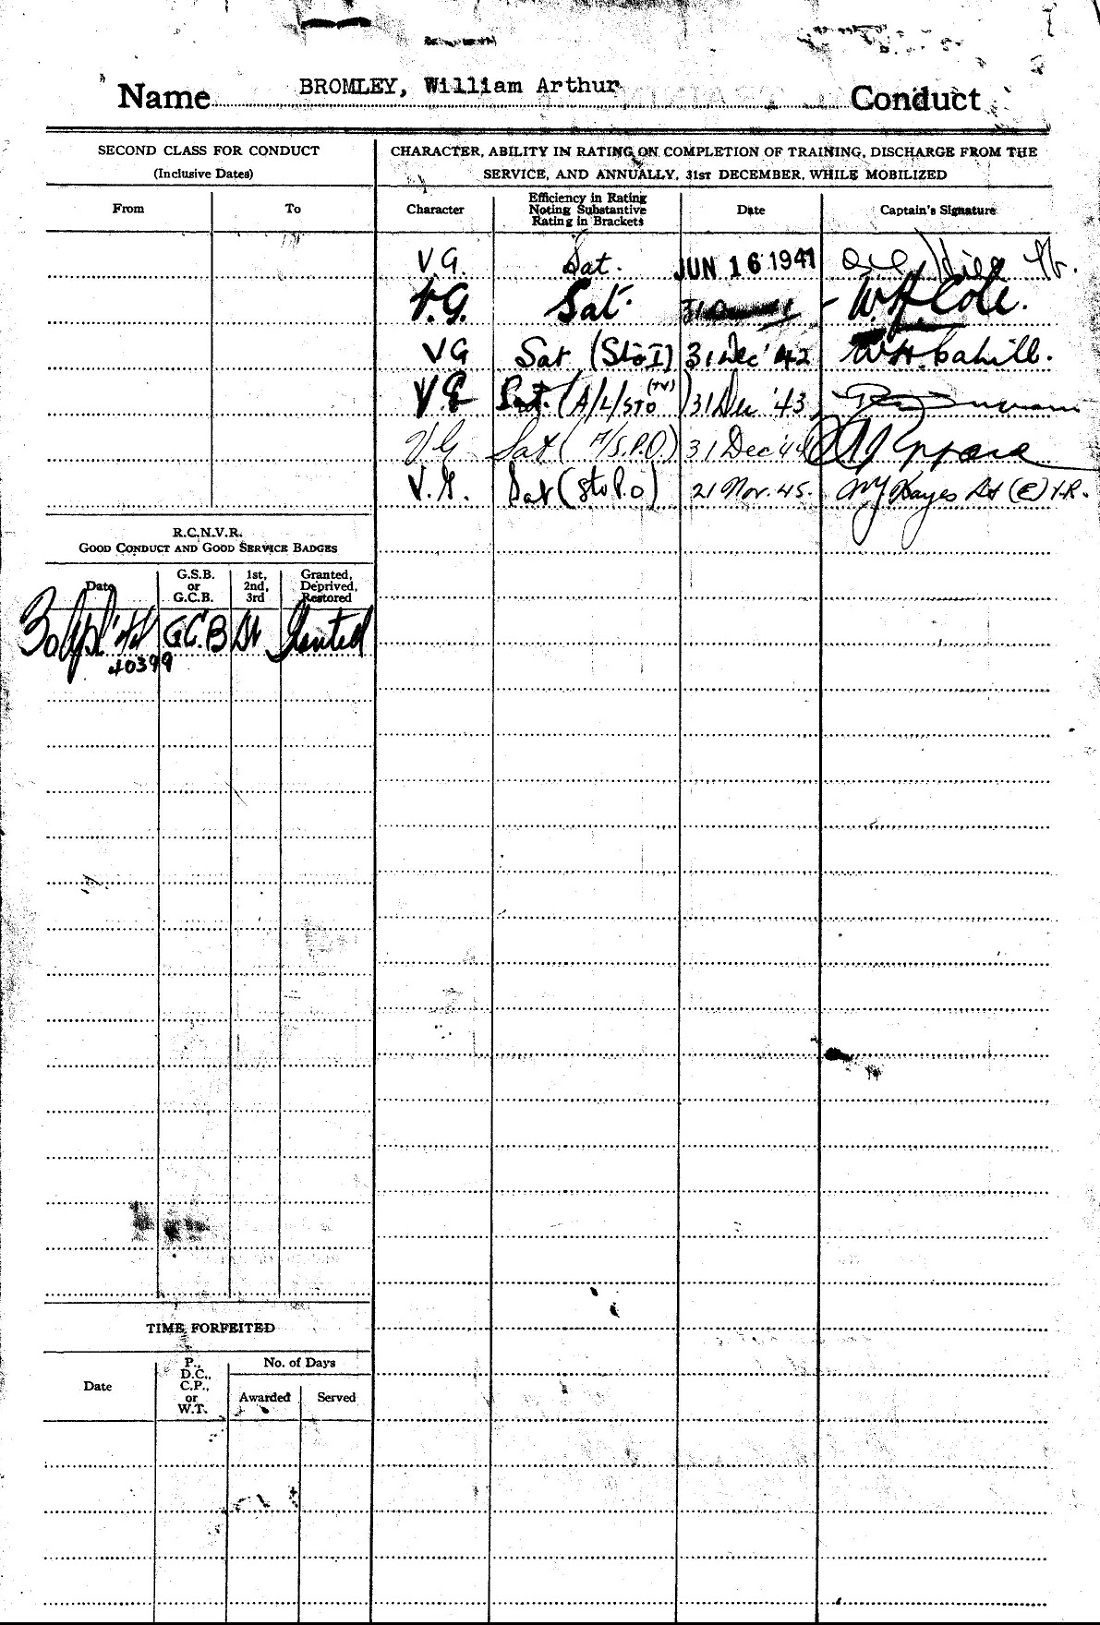 Name BROMLEY, William Arthur Conduct
SECOND CLASS FOR CONDUCT
(Inclusive Dates)
From To
CHARACTER, ABILITY IN RATING ON COMPLETION OF TRAINING, DISCHARGE FROM THE
SERVICE, AND ANNUALLY, 31ST DECEMBER, WHILE MOBILIZED
Character Efficiency in Rating Noting Substantive Rating in Brackets Date Captain's Signature
V.G. Sat. JUN 16 1941
V.G. Sat. W.H. Cole.
VG Sat (Sto I) 31 Dec '42 W.H. Cahill.
V.G. Sat. (A/L/STO (TY)) 31 Dec '43
VG Sat (A/S.P.O.) 31 Dec 44
V.G. Sat (Sto P.O) 21 Nov. 45. Hayes Lt (E) V.R.
R.C.N.V.R.
GOOD CONDUCT AND GOOD SERVICE BADGES
Date G.S.B. or G.C.B. 1st, 2nd, 3rd Granted, Deprived, Restored
30 Apl '44 G.C.B 1st Granted
40399
TIME FORFEITED
Date P., D.C., C.P., or W.T. No. of Days
Awarded Served